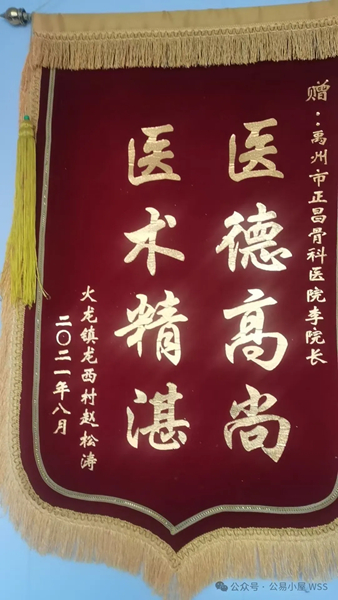 赠：禹州市正昌骨科医院李院长
医德高尚
医术精湛
火龙镇龙西村赵松涛
二〇二一年八月
公众号·公易小屋WSS